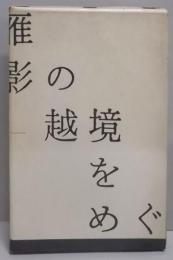 雁影
の越
境をめ
ぐ